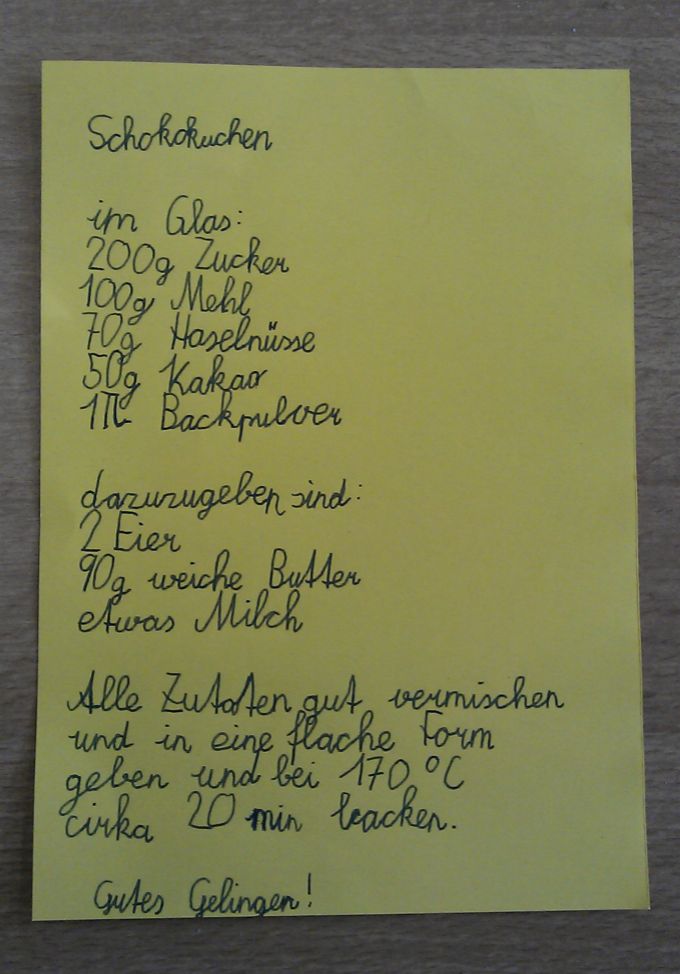 Schokokuchen
im Glas:
200g Zucker
100g Mehl
70g Haselnüsse
50g Kakao
1TL Backpulver
dazuzugeben sind:
2 Eier
90g weiche Butter
etwas Milch
Alle Zutaten gut vermischen
und in eine flache Form
geben und bei 170 °C
cirka 20 min backen.
Gutes Gelingen!